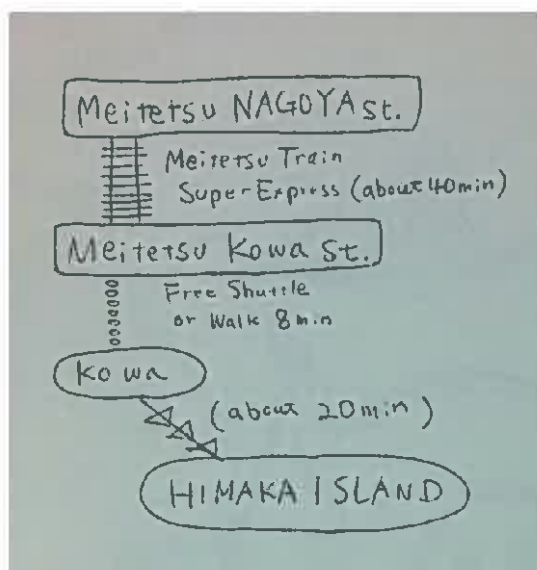 Meitetsu NAGOYA st.
Meitetsu Train
Super Express (about 40min)
Meitetsu Kowa St.
Free Shuttle
or Walk 8min
Kowa
(about 20min)
HIMAKA ISLAND